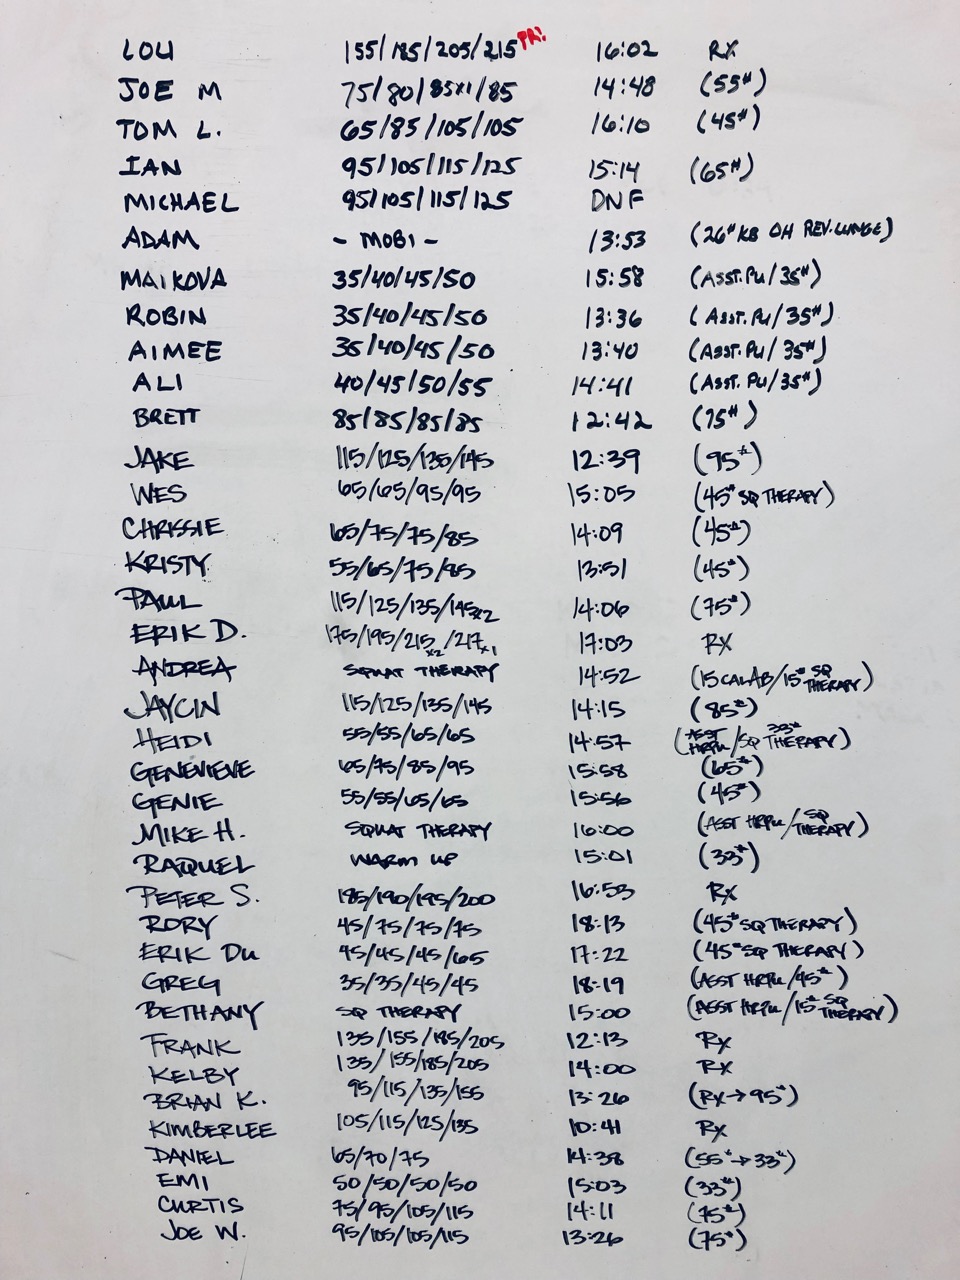 LOU 155/185/205/215 PR! 16:02 RX
JOE M 75/80/85x1/85 14:48 (55#)
TOM L. 65/85/105/105 16:10 (45#)
IAN 95/105/115/125 15:14 (65#)
MICHAEL 95/105/115/125 DNF
ADAM - MOBI - 13:53 (26# KB OH REV. LUNGE)
MAIKOVA 35/40/45/50 15:58 (ASST. PU/35#)
ROBIN 35/40/45/50 13:36 (ASST. PU/35#)
AIMEE 35/40/45/50 13:40 (ASST. PU/35#)
ALI 40/45/50/55 14:41 (ASST. PU/35#)
BRETT 85/85/85/85 12:42 (75#)
JAKE 115/125/135/145 12:39 (95#)
WES 65/65/95/95 15:05 (45# SQ THERAPY)
CHRISSIE 65/75/75/85 14:09 (45#)
KRISTY 55/65/75/85 13:51 (45#)
PAUL 115/125/135/145x2 14:06 (75#)
ERIK D. 175/195/215x2/217x1 17:03 RX
ANDREA SQUAT THERAPY 14:52 (15 CAL AB/15# SQ THERAPY)
JAYCIN 115/125/135/145 14:15 (85#)
HEIDI 55/55/65/65 14:57 (ASST HRPU/SQ THERAPY 33#)
GENEVIEVE 65/75/85/95 15:58 (65#)
GENIE 55/55/65/65 15:56 (45#)
MIKE H. SQUAT THERAPY 16:00 (ASST HRPU/SQ THERAPY)
RAQUEL WARM UP 15:01 (33#)
PETER S. 185/190/195/200 16:53 RX
RORY 45/75/75/75 18:13 (45# SQ THERAPY)
ERIK DU 45/45/45/65 17:22 (45# SQ THERAPY)
GREG 35/35/45/45 18:19 (ASST HRPU/45#)
BETHANY SQ THERAPY 15:00 (ASST HRPU/15# SQ THERAPY)
FRANK 135/155/185/205 12:13 Rx
KELBY 135/155/185/205 14:00 Rx
BRIAN K. 95/115/135/155 13:26 (Rx→95#)
KIMBERLEE 105/115/125/135 10:41 Rx
DANIEL 65/70/75 14:38 (55#→33#)
EMI 50/50/50/50 15:03 (33#)
CURTIS 75/95/105/115 14:11 (75#)
JOE W. 95/105/105/115 13:26 (75#)